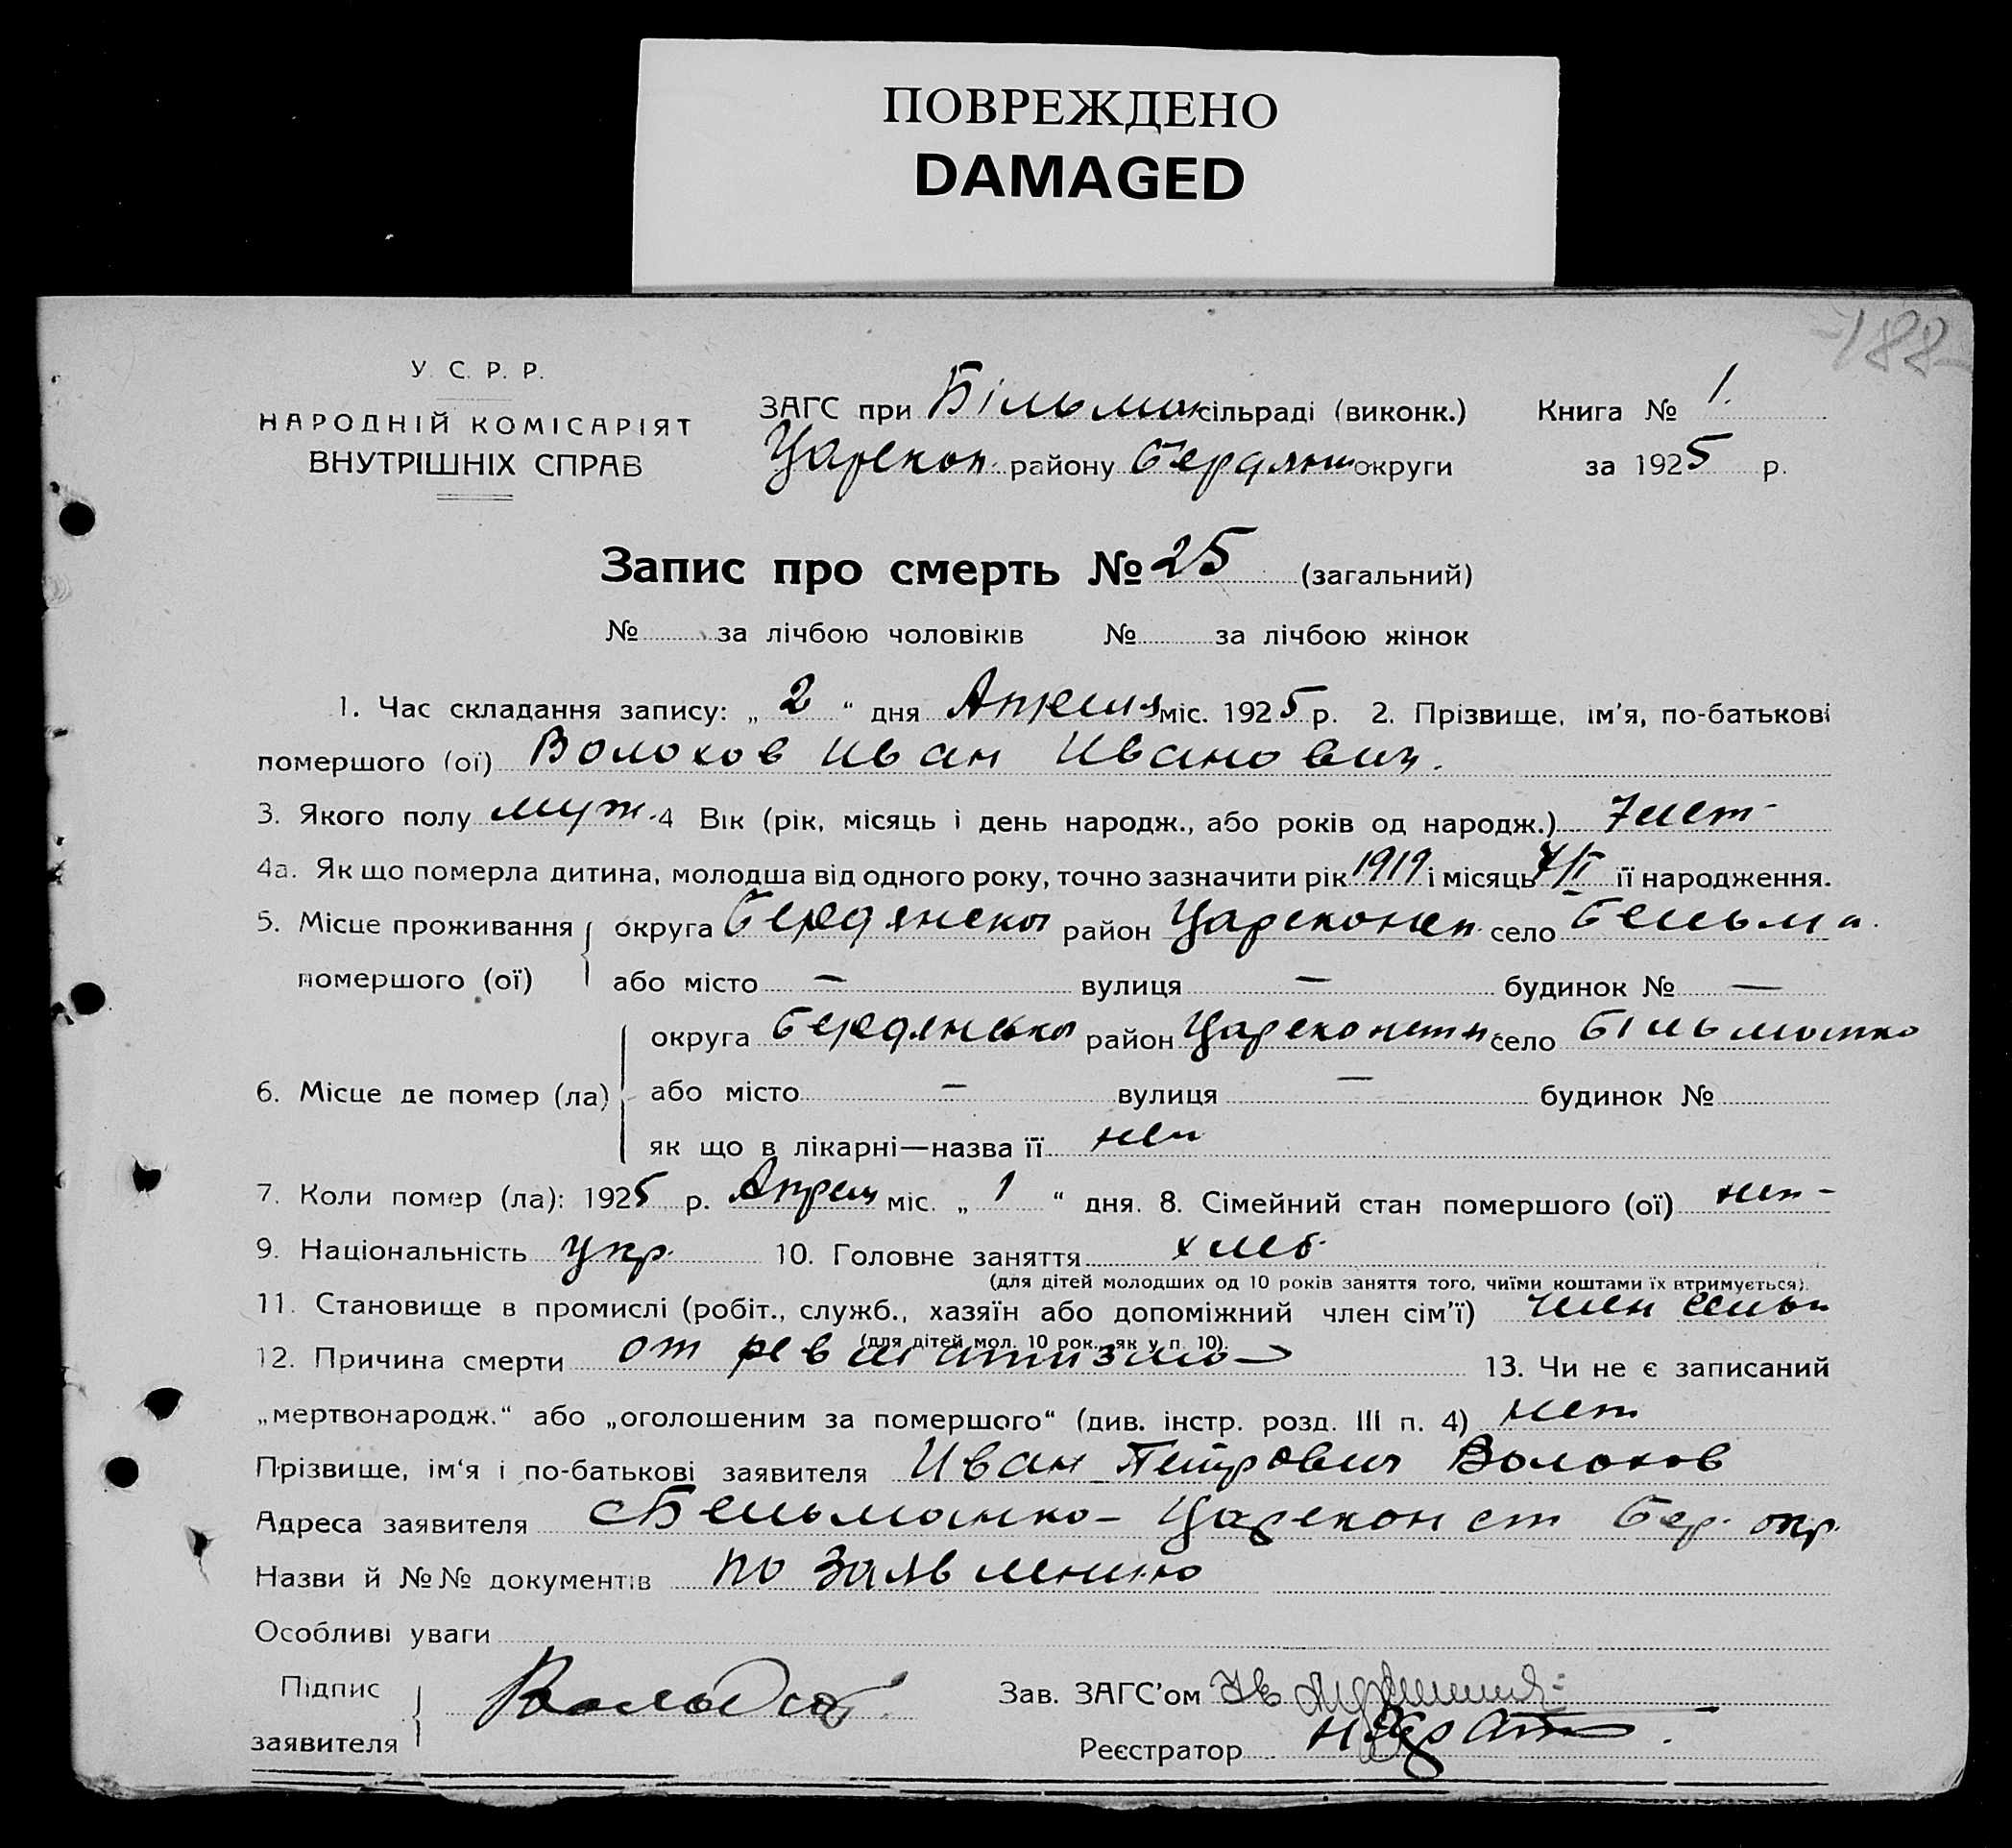 ПОВРЕЖДЕНО
DAMAGED
188
У. С. Р. Р.
НАРОДНІЙ КОМІСАРІЯТ
ВНУТРІШНІХ СПРАВ
ЗАГС при Більман сільраді (виконк.) Книга № 1.
Царекон. району Бердян округи за 1925 р.
Запис про смерть № 25 (загальний)
№ за лічбою чоловіків № за лічбою жінок
1. Час складання запису: „ 2 “ дня Апреля міс. 1925 р. 2. Прізвище, ім'я, по-батькові
помершого (ої) Волохов Иван Иванович.
3. Якого полу муж. 4 Вік (рік, місяць і день народж., або років од народж.) 7 лет
4а. Як що померла дитина, молодша від одного року, точно зазначити рік 1919 і місяць її народження.
5. Місце проживання округа район Царекон село
помершого (ої) або місто — вулиця — будинок № —
округа район село
6. Місце де помер (ла) або місто — вулиця — будинок №
як що в лікарні—назва її нет
7. Коли помер (ла): 1925 р. Апрель міс. „ 1 “ дня. 8. Сімейний стан помершого (ої) нет
9. Національність укр. 10. Головне заняття хлеб.
(для дітей молодших од 10 років заняття того, чиїми коштами їх втримується).
11. Становище в промислі (робіт., служб., хазяїн або допоміжний член сім'ї) член семьи
(для дітей мол. 10 рок., як у п. 10).
12. Причина смерти от ревматизма 13. Чи не є записаний
„мертвонародж.“ або „оголошеним за помершого“ (див. інстр. розд. III п. 4) нет
Прізвище, ім'я і по-батькові заявителя Иван Петрович Волохов
Адреса заявителя с Бельманка - Цареконст Бер. окр.
Назви й №№ документів по заявлению
Особливі уваги
Підпис
заявителя
Зав. ЗАГС'ом
Реєстратор